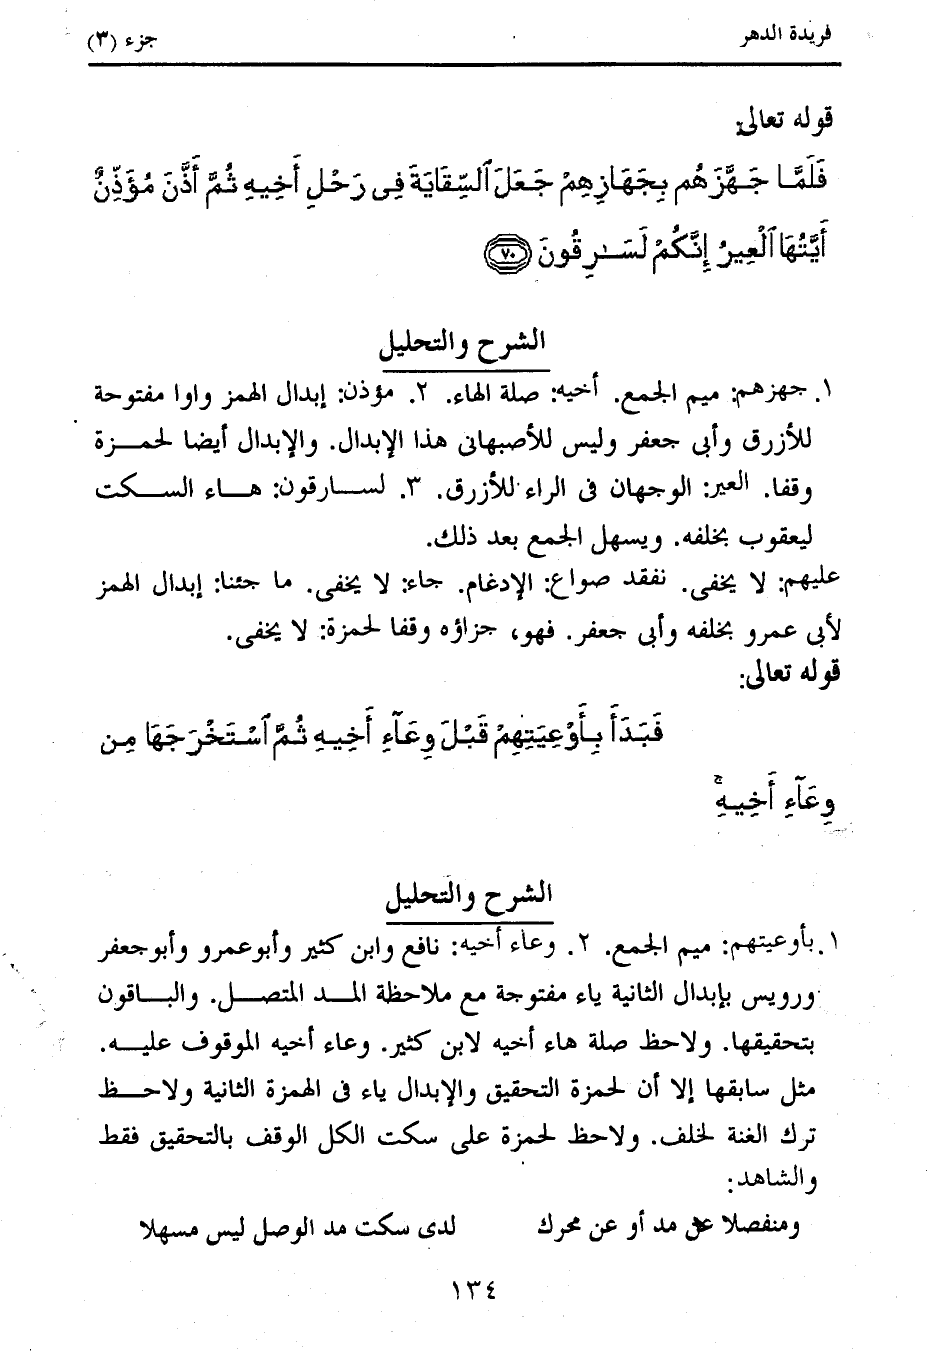 فريدة الدهر
جزء (٣)
قوله تعالى:
فَلَمَّا جَهَّزَهُم بِجَهَازِهِمْ جَعَلَ ٱلسِّقَايَةَ فِى رَحْلِ أَخِيهِ ثُمَّ أَذَّنَ مُؤَذِّنٌ
أَيَّتُهَا ٱلْعِيرُ إِنَّكُمْ لَسَـٰرِقُونَ ٧٠
الشرح والتحليل
١. جهزهم: ميم الجمع. أخيه: صلة الهاء. ٢. مؤذن: إبدال الهمز واوا مفتوحة
للأزرق وأبى جعفر وليس للأصبهانى هذا الإبدال. والإبدال أيضا لحمزة
وقفا. العير: الوجهان فى الراء للأزرق. ٣. لسارقون: هاء السكت
ليعقوب بخلفه. ويسهل الجمع بعد ذلك.
عليهم: لا يخفى. نفقد صواع: الإدغام. جاء: لا يخفى. ما جئنا: إبدال الهمز
لأبى عمرو بخلفه وأبى جعفر. فهو، جزاؤه وقفا لحمزة: لا يخفى.
قوله تعالى:
فَبَدَأَ بِأَوْعِيَتِهِمْ قَبْلَ وِعَآءِ أَخِيهِ ثُمَّ ٱسْتَخْرَجَهَا مِن
وِعَآءِ أَخِيهِۚ
الشرح والتحليل
١. بأوعيتهم: ميم الجمع. ٢. وعاء أخيه: نافع وابن كثير وأبوعمرو وأبوجعفر
ورويس بإبدال الثانية ياء مفتوحة مع ملاحظة المد المتصل. والباقون
بتحقيقها. ولاحظ صلة هاء أخيه لابن كثير. وعاء أخيه الموقوف عليه.
مثل سابقها إلا أن لحمزة التحقيق والإبدال ياء فى الهمزة الثانية ولاحظ
ترك الغنة لخلف. ولاحظ لحمزة على سكت الكل الوقف بالتحقيق فقط
والشاهد:
ومنفصلا عن مد أو عن محرك لدى سكت مد الوصل ليس مسهلا
١٣٤